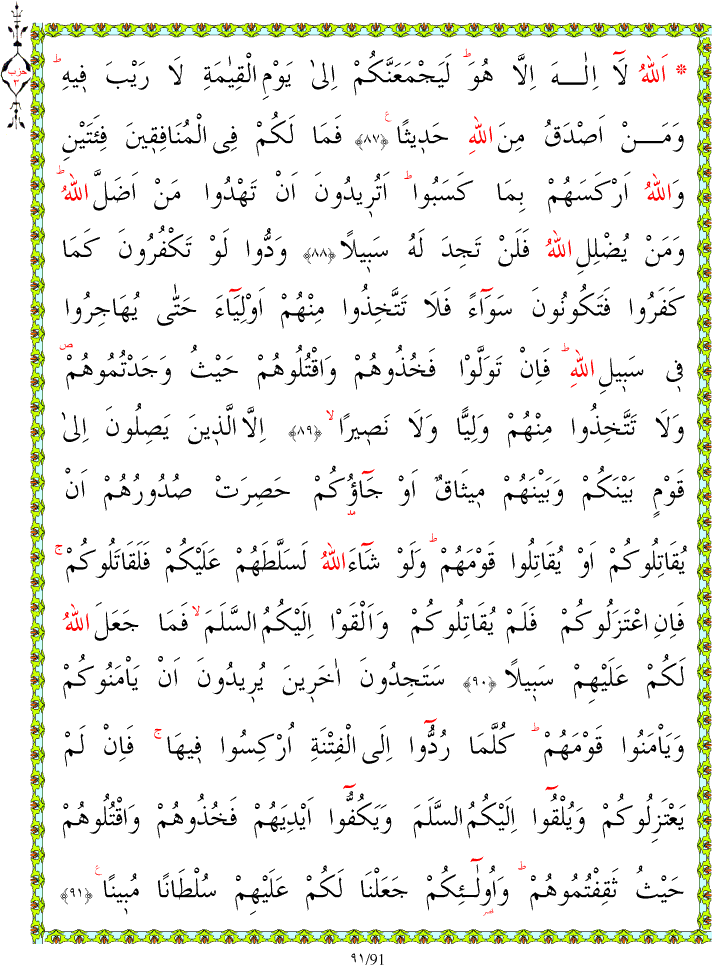 حزب
٣
* اَللّٰهُ لَٓا اِلٰـهَ اِلَّا هُوَۜ لَيَجْمَعَنَّكُمْ اِلٰى يَوْمِ الْقِيٰمَةِ لَا رَيْبَ ف۪يهِۜ
وَمَـنْ اَصْدَقُ مِنَ اللّٰهِ حَد۪يثًاۚ ﴿٨٧﴾ فَمَا لَكُمْ فِي الْمُنَافِق۪ينَ فِئَتَيْنِ
وَاللّٰهُ اَرْكَسَهُمْ بِمَا كَسَبُواۜ اَتُر۪يدُونَ اَنْ تَهْدُوا مَنْ اَضَلَّ اللّٰهُۜ
وَمَنْ يُضْلِلِ اللّٰهُ فَلَنْ تَجِدَ لَهُ سَب۪يلًا ﴿٨٨﴾ وَدُّوا لَوْ تَكْفُرُونَ كَمَا
كَفَرُوا فَتَكُونُونَ سَوَٓاءً فَلَا تَتَّخِذُوا مِنْهُمْ اَوْلِيَٓاءَ حَتّٰى يُهَاجِرُوا
ف۪ي سَب۪يلِ اللّٰهِۜ فَاِنْ تَوَلَّوْا فَخُذُوهُمْ وَاقْتُلُوهُمْ حَيْثُ وَجَدْتُمُوهُمْۖ
وَلَا تَتَّخِذُوا مِنْهُمْ وَلِيًّا وَلَا نَص۪يرًاۙ ﴿٨٩﴾ اِلَّا الَّذ۪ينَ يَصِلُونَ اِلٰى
قَوْمٍ بَيْنَكُمْ وَبَيْنَهُمْ م۪يثَاقٌ اَوْ جَٓاؤُ۫كُمْ حَصِرَتْ صُدُورُهُمْ اَنْ
يُقَاتِلُوكُمْ اَوْ يُقَاتِلُوا قَوْمَهُمْۜ وَلَوْ شَٓاءَ اللّٰهُ لَسَلَّطَهُمْ عَلَيْكُمْ فَلَقَاتَلُوكُمْۚ
فَاِنِ اعْتَزَلُوكُمْ فَلَمْ يُقَاتِلُوكُمْ وَاَلْقَوْا اِلَيْكُمُ السَّلَمَۙ فَمَا جَعَلَ اللّٰهُ
لَكُمْ عَلَيْهِمْ سَب۪يلًا ﴿٩٠﴾ سَتَجِدُونَ اٰخَر۪ينَ يُر۪يدُونَ اَنْ يَأْمَنُوكُمْ
وَيَأْمَنُوا قَوْمَهُمْۜ كُلَّمَا رُدُّٓوا اِلَى الْفِتْنَةِ اُرْكِسُوا ف۪يهَاۚ فَاِنْ لَمْ
يَعْتَزِلُوكُمْ وَيُلْقُٓوا اِلَيْكُمُ السَّلَمَ وَيَكُفُّٓوا اَيْدِيَهُمْ فَخُذُوهُمْ وَاقْتُلُوهُمْ
حَيْثُ ثَقِفْتُمُوهُمْۜ وَاُو۬لٰٓـئِكُمْ جَعَلْنَا لَكُمْ عَلَيْهِمْ سُلْطَانًا مُب۪ينًاۚ ﴿٩١﴾
٩١/91